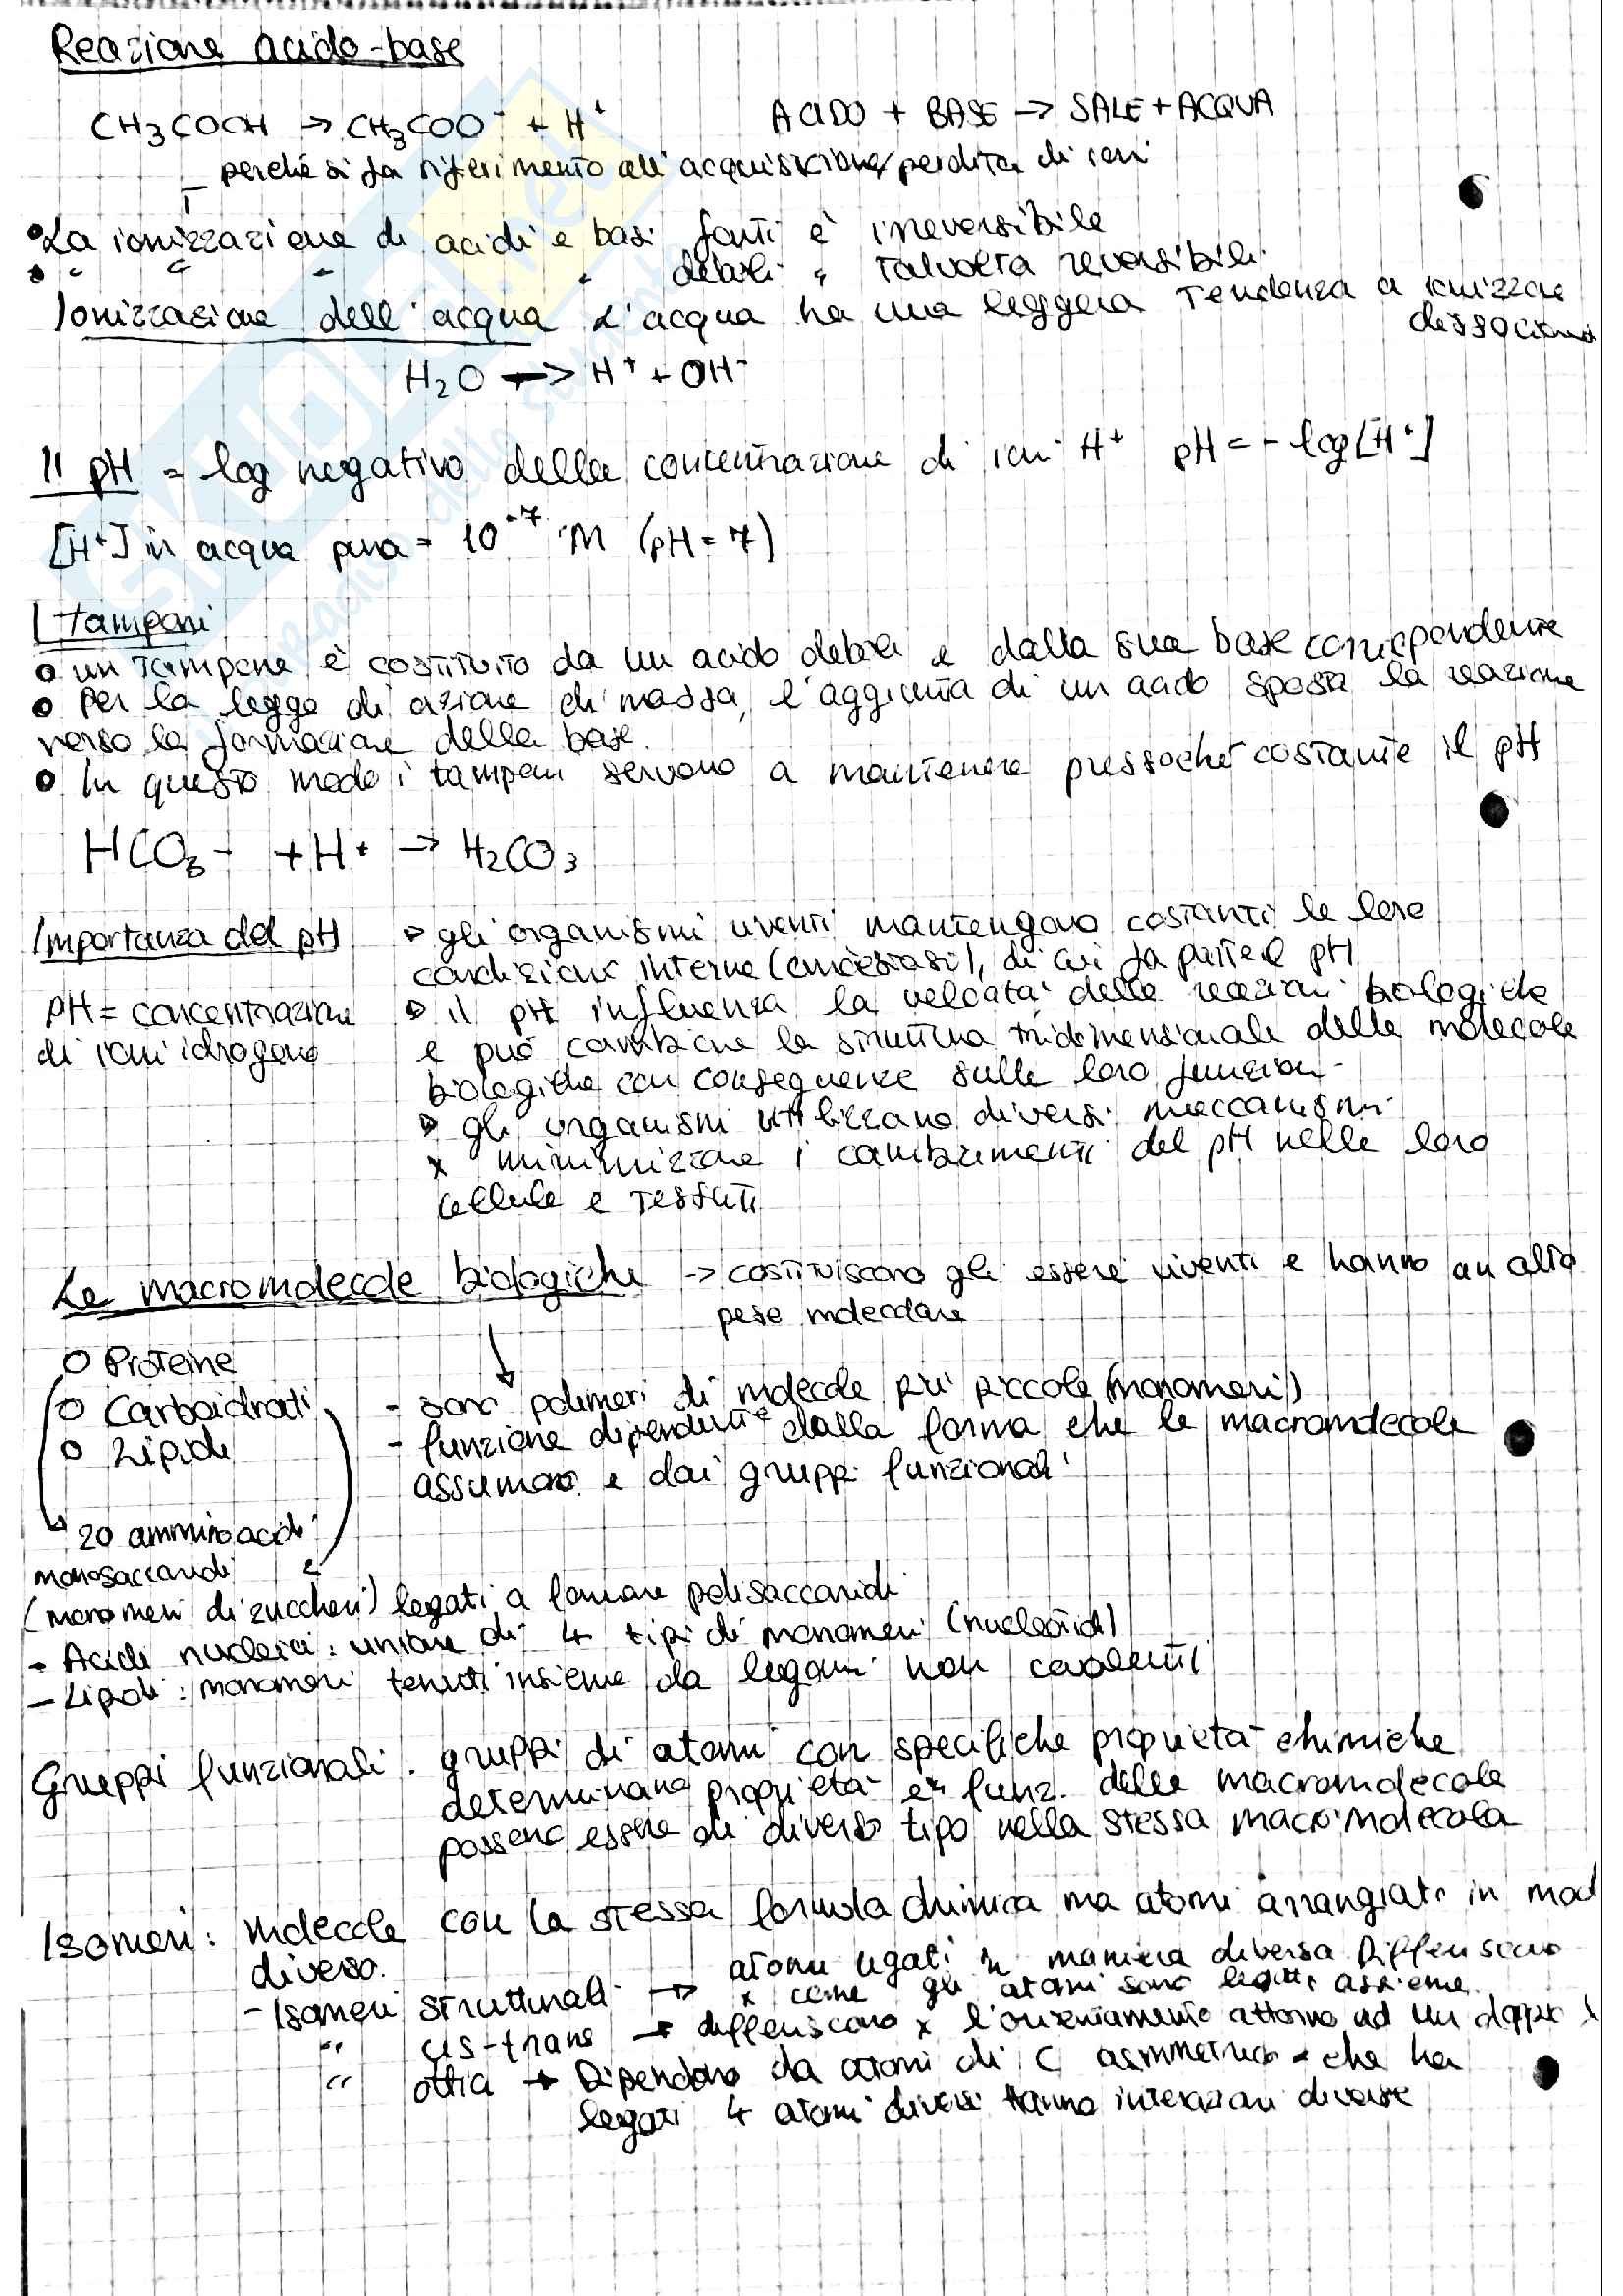 Reazione acido-base
CH3COOH → CH3COO⁻ + H⁺ ACIDO + BASE → SALE + ACQUA
perché si fa riferimento all'acquisizione/perdita di ioni
• La ionizzazione di acidi e basi forti è irreversibile
• " " " " deboli " talvolta reversibile.
Ionizzazione dell'acqua L'acqua ha una leggera tendenza a ionizzare
dissociarsi
H2O → H⁺ + OH⁻
Il pH = log negativo della concentrazione di ioni H⁺ pH = - log[H⁺]
[H⁺] in acqua pura = 10⁻⁷ M (pH = 7)
I tamponi
o un tampone è costituito da un acido debole e dalla sua base corrispondente
o Per la legge di azione di massa, l'aggiunta di un acido sposta la reazione
verso la formazione della base.
o In questo modo i tamponi servono a mantenere pressoché costante il pH
HCO3⁻ + H⁺ → H2CO3
Importanza del pH
pH = concentrazione
di ioni idrogeno
▹ gli organismi viventi mantengono costanti le loro
condizioni interne (omeostasi), di cui fa parte il pH
▹ il pH influenza la velocità delle reazioni biologiche
e può cambiare la struttura tridimensionale delle molecole
biologiche con conseguenze sulle loro funzioni.
▹ gli organismi utilizzano diversi meccanismi
x minimizzare i cambiamenti del pH nelle loro
cellule e tessuti
Le macromolecole biologiche → costituiscono gli essere viventi e hanno un alto
peso molecolare
o Proteine
o Carboidrati
o Lipidi
- sono polimeri di molecole più piccole (monomeri)
- funzione dipendente dalla forma che le macromolecole
assumono e dai gruppi funzionali
20 amminoacidi
monosaccaridi
(monomeri di zuccheri) legati a formare polisaccaridi
- Acidi nucleici: unione di 4 tipi di monomeri (nucleotidi)
- Lipidi: monomeri tenuti insieme da legami non covalenti
Gruppi funzionali: gruppi di atomi con specifiche proprietà chimiche
determinano proprietà e funz. delle macromolecole
possono essere di diverso tipo nella stessa macromolecola
Isomeri: molecole con la stessa formula chimica ma atomi arrangiati in mod
diverso.
- Isomeri strutturali → atomi legati in maniera diversa Differiscono
x come gli atomi sono legati assieme.
" cis-trans → differiscono x l'orientamento attorno ad un doppio l
" ottici → Dipendono da atomi di C asimmetrico che ha
legati 4 atomi diversi hanno interazioni diverse
SKUOLA.net